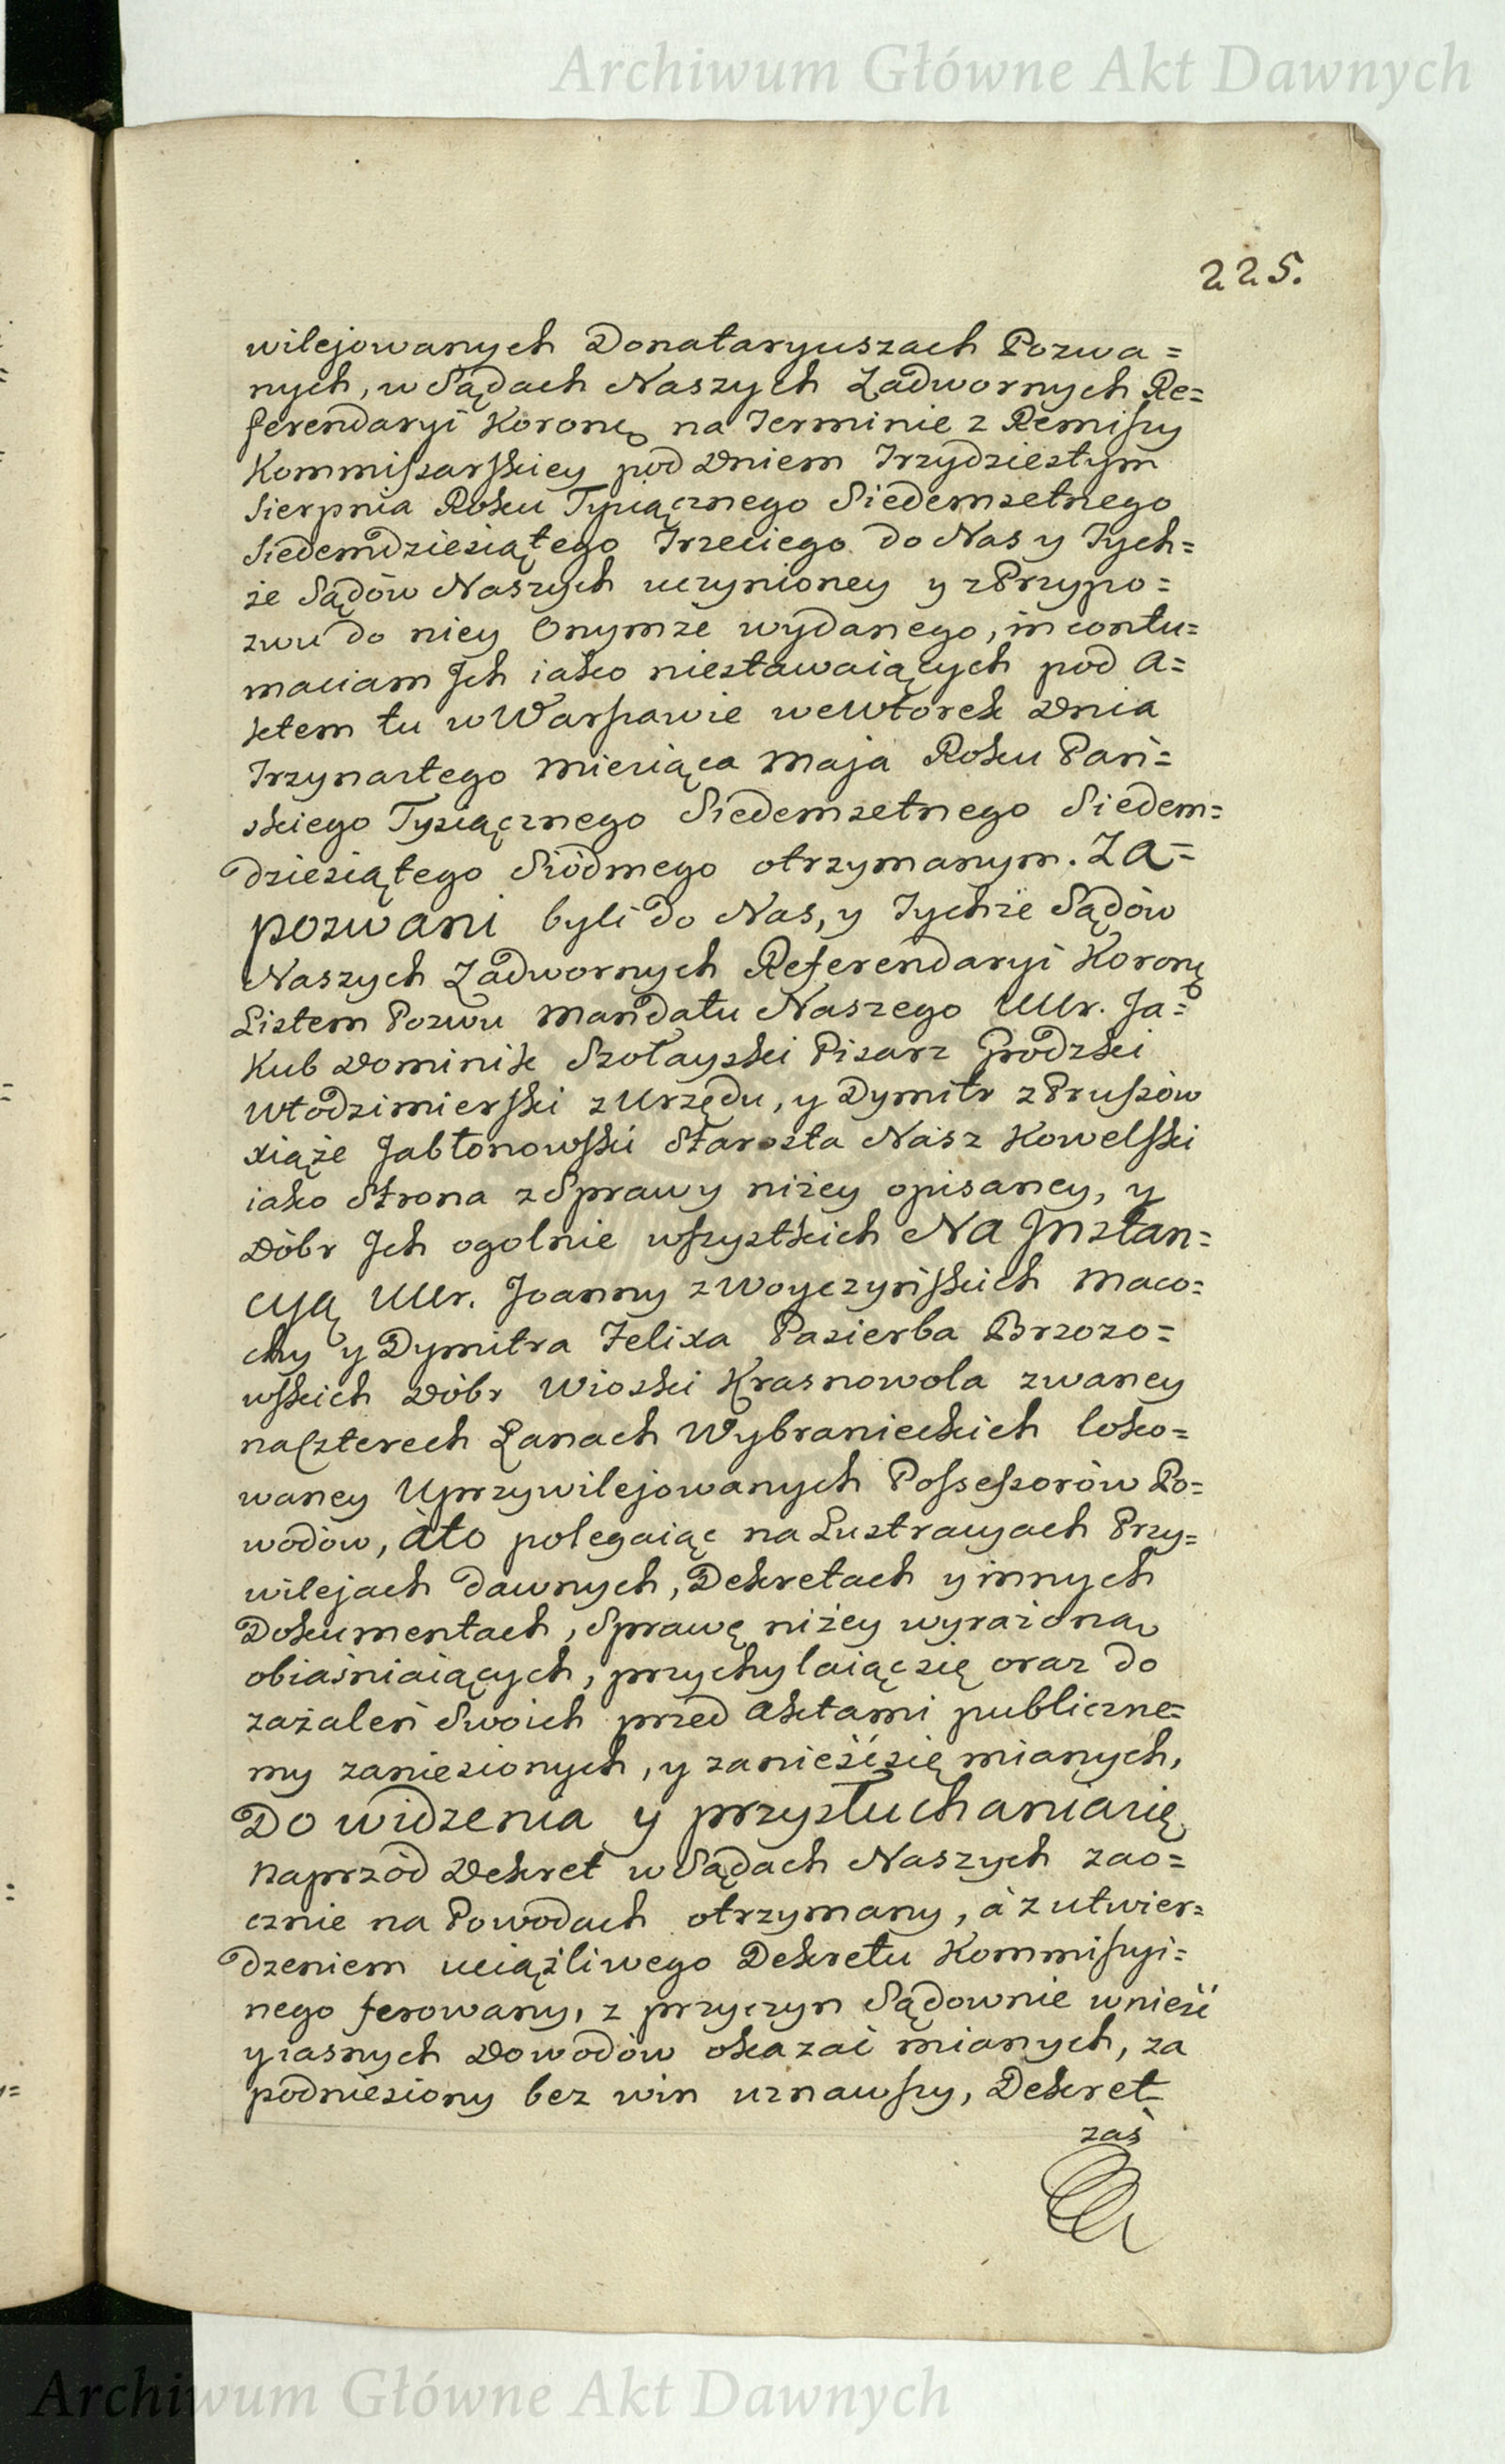 Archiwum Główne Akt Dawnych
225.
wilejowanych Donataryuszach Pozwa=
nych, w Sądach Naszych Zadwornych Re=
ferendaryi Koronę na Terminie z Remissy
Kommissarskiey pod Dniem Trzydziestym
Sierpnia Roku Tysiącznego Siedemsetnego
Siedemdziesiątego Trzeciego do Nas y Tych=
że Sądów Naszych uczynioney y z Przypo=
zwu do niey Onymże wydanego, in contu=
maciam Jch iako niestawaiących pod A=
ktem tu w Warszawie we Wtorek Dnia
Trzynastego Miesiąca Maja Roku Pań=
skiego Tysiącznego Siedemsetnego Siedem=
dziesiątego Siódmego otrzymanym. ZA=
pozwani byli do Nas, y Tychże Sądów
Naszych Zadwornych Referendaryi Koronę
Listem Pozwu Mandatu Naszego Ur. Ja=
kub Dominik Szołayski Pisarz Grodzki
Włodzimierski z Urzędu, y Dymitr z Prussów
Xiąże Jabłonowski Starosta Nasz Kowelski
iako Strona z Sprawy niżey opisaney, y
Dóbr Jch ogolnie wszystkich NA Jnstan=
cyą Ur. Joanny z Woyczyńskich Maco=
chy y Dymitra Felixa Pasierba Brzozo=
wskich Dóbr Wioski Krasnowola zwaney
na Czterech Łanach Wybranieckich loko=
waney Uprzywilejowanych Possessorów Po=
wodów, Ato polegaiąc na Lustracyach Przy=
wilejach dawnych, Dekretach y innych
Dokumentach, Sprawę niżey wyrażoną
obiaśniaiących, przychylaiąc się oraz do
zażaleń Swoich przed Aktami publiczne=
my zaniesionych, y zanieść się mianych,
Do widzenia y przysłuchania się
naprzód Dekret w Sądach Naszych zao=
cznie na Powodach otrzymany, à z utwier=
dzeniem uciążliwego Dekretu Kommissyi=
nego ferowany, z przyczyn Sądownie wnieść
y iasnych Dowodów okazać mianych, za
podniesiony bez win uznawszy, Dekret
zaś
Archiwum Główne Akt Dawnych